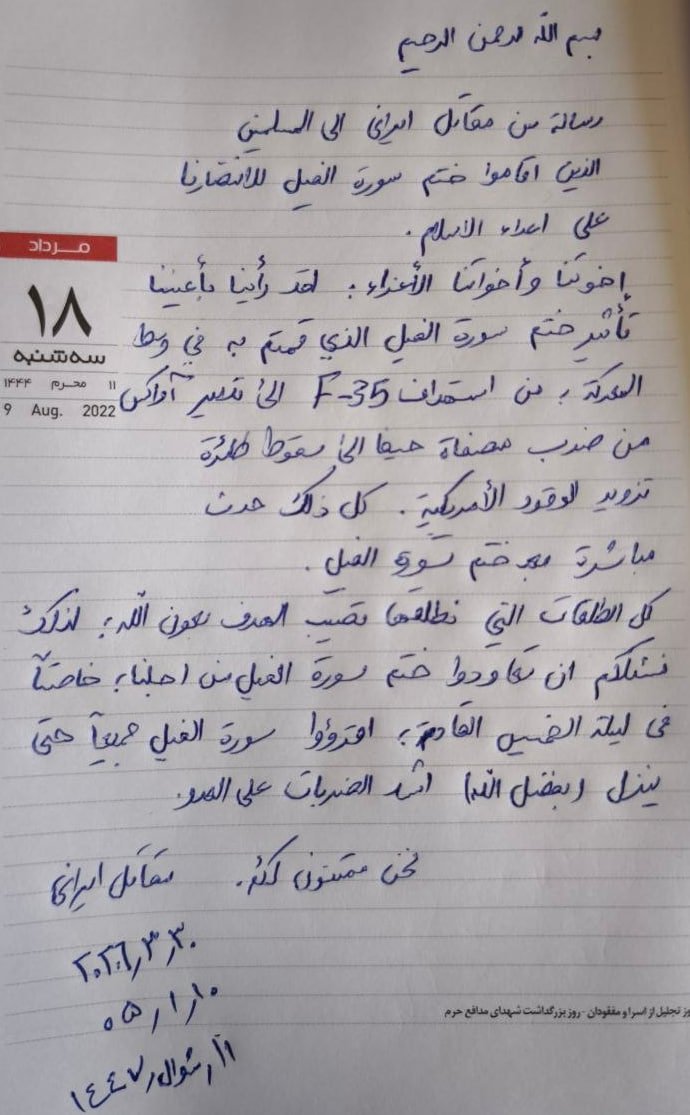 بسم الله الرحمن الرحيم
رسالة من مقاتل ايراني الى المسلمين
الذين اقاموا ختم سورة الفيل للانتصارنا
على اعداء الاسلام.
إخوتنا وأخواتنا الأعزاء؛ لقد رأينا بأعيننا
تأثير ختم سورة الفيل الذي قمتم به في وسط
المعركة؛ من استهداف F-35 الى تدمير آواكس
من ضرب مصفاة حيفا الى سقوط طائرة
تزويد الوقود الأمريكية. كل ذلك حدث
مباشرة بعد ختم سورة الفيل.
كل الطلقات التي نطلقها تصيب الهدف بعون الله؛ لذلك
نسئلكم ان تعاودوا ختم سورة الفيل من اجلنا؛ خاصتاً
في ليلة الخميس القادمة؛ اقرؤوا سورة الفيل جميعاً حتى
ينزل (بفضل الله) اشد الضربات على العدو.
نحن ممتنون لكم. مقاتل ايراني
٢٠٢٦٫٣٫٣٠
۰۵٫۱٫۱۰
١١٫شوال٫١٤٤٧
مـرداد
۱۸
سه‌شنبه
۱۱ محرم ۱۴۴۴
9 Aug. 2022
وز تجلیل از اسرا و مفقودان - روز بزرگداشت شهدای مدافع حرم